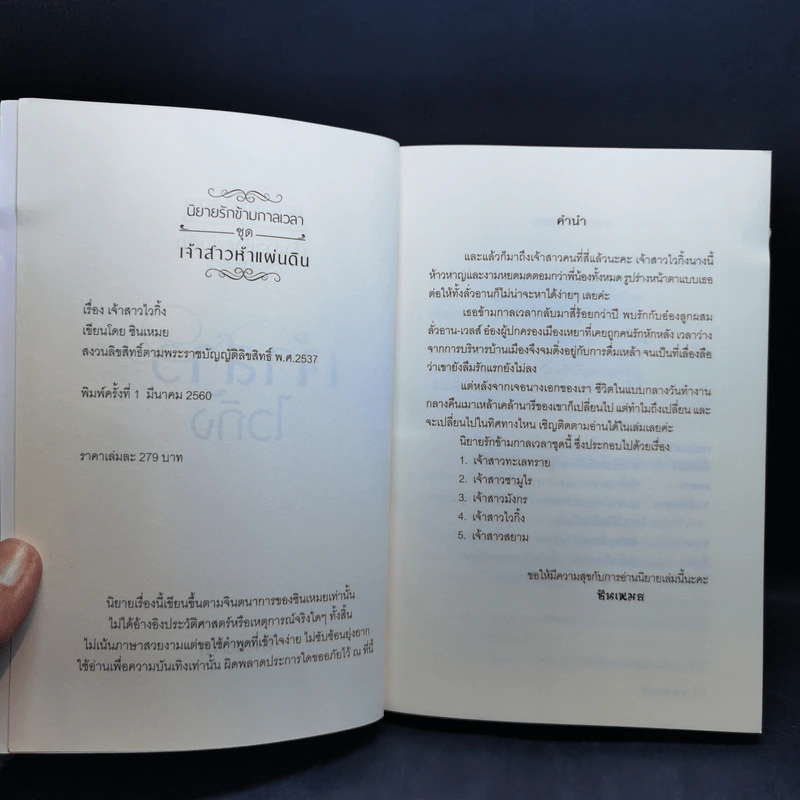 นิยายรักข้ามกาลเวลา
ชุด
เจ้าสาวห้าแผ่นดิน
เรื่อง เจ้าสาวไวกิ้ง
เขียนโดย ซินเหมย
สงวนลิขสิทธิ์ตามพระราชบัญญัติลิขสิทธิ์ พ.ศ.2537
พิมพ์ครั้งที่ 1 มีนาคม 2560
ราคาเล่มละ 279 บาท
นิยายเรื่องนี้เขียนขึ้นตามจินตนาการของซินเหมยเท่านั้น
ไม่ได้อ้างอิงประวัติศาสตร์หรือเหตุการณ์จริงใดๆ ทั้งสิ้น
ไม่เน้นภาษาสวยงามแต่ขอใช้คำพูดที่เข้าใจง่าย ไม่ซับซ้อนยุ่งยาก
ใช้อ่านเพื่อความบันเทิงเท่านั้น ผิดพลาดประการใดขออภัยไว้ ณ ที่นี้
คำนำ
และแล้วก็มาถึงเจ้าสาวคนที่สี่แล้วนะคะ เจ้าสาวไวกิ้งนางนี้
ห้าวหาญและงามหยดมดตอมกว่าพี่น้องทั้งหมด รูปร่างหน้าตาแบบเธอ
ต่อให้ทั้งลั่วอานก็ไม่น่าจะหาได้ง่ายๆ เลยค่ะ
เธอข้ามกาลเวลากลับมาสี่ร้อยกว่าปี พบรักกับอ๋องลูกผสม
ลั่วอาน-เวลส์ อ๋องผู้ปกครองเมืองเหยาที่เคยถูกคนรักหักหลัง เวลาว่าง
จากการบริหารบ้านเมืองจึงจมดิ่งอยู่กับการดื่มเหล้า จนเป็นที่เลื่องลือ
ว่าเขายังลืมรักแรกยังไม่ลง
แต่หลังจากเจอนางเอกของเรา ชีวิตในแบบกลางวันทำงาน
กลางคืนเมาเหล้าเคล้านารีของเขาก็เปลี่ยนไป แต่ทำไมถึงเปลี่ยน และ
จะเปลี่ยนไปในทิศทางไหน เชิญติดตามอ่านได้ในเล่มเลยค่ะ
นิยายรักข้ามกาลเวลาชุดนี้ ซึ่งประกอบไปด้วยเรื่อง
1. เจ้าสาวทะเลทราย
2. เจ้าสาวซามูไร
3. เจ้าสาวมังกร
4. เจ้าสาวไวกิ้ง
5. เจ้าสาวสยาม
ขอให้มีความสุขกับการอ่านนิยายเล่มนี้นะคะ
ซินเหมย